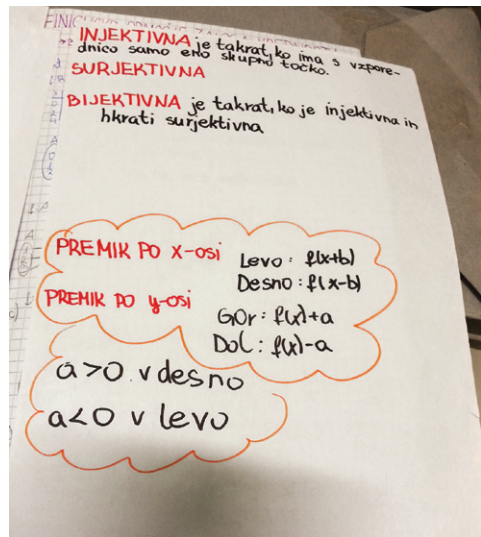 INJEKTIVNA je takrat, ko ima s vzpore-
dnico samo eno skupno točko.
SURJEKTIVNA
BIJEKTIVNA je takrat, ko je injektivna in
hkrati surjektivna
PREMIK PO x-osi
Levo: f(x+b)
Desno: f(x-b)
PREMIK PO y-osi
GOr: f(x)+a
Dol: f(x)-a
a>0. v desno
a<0 v levo